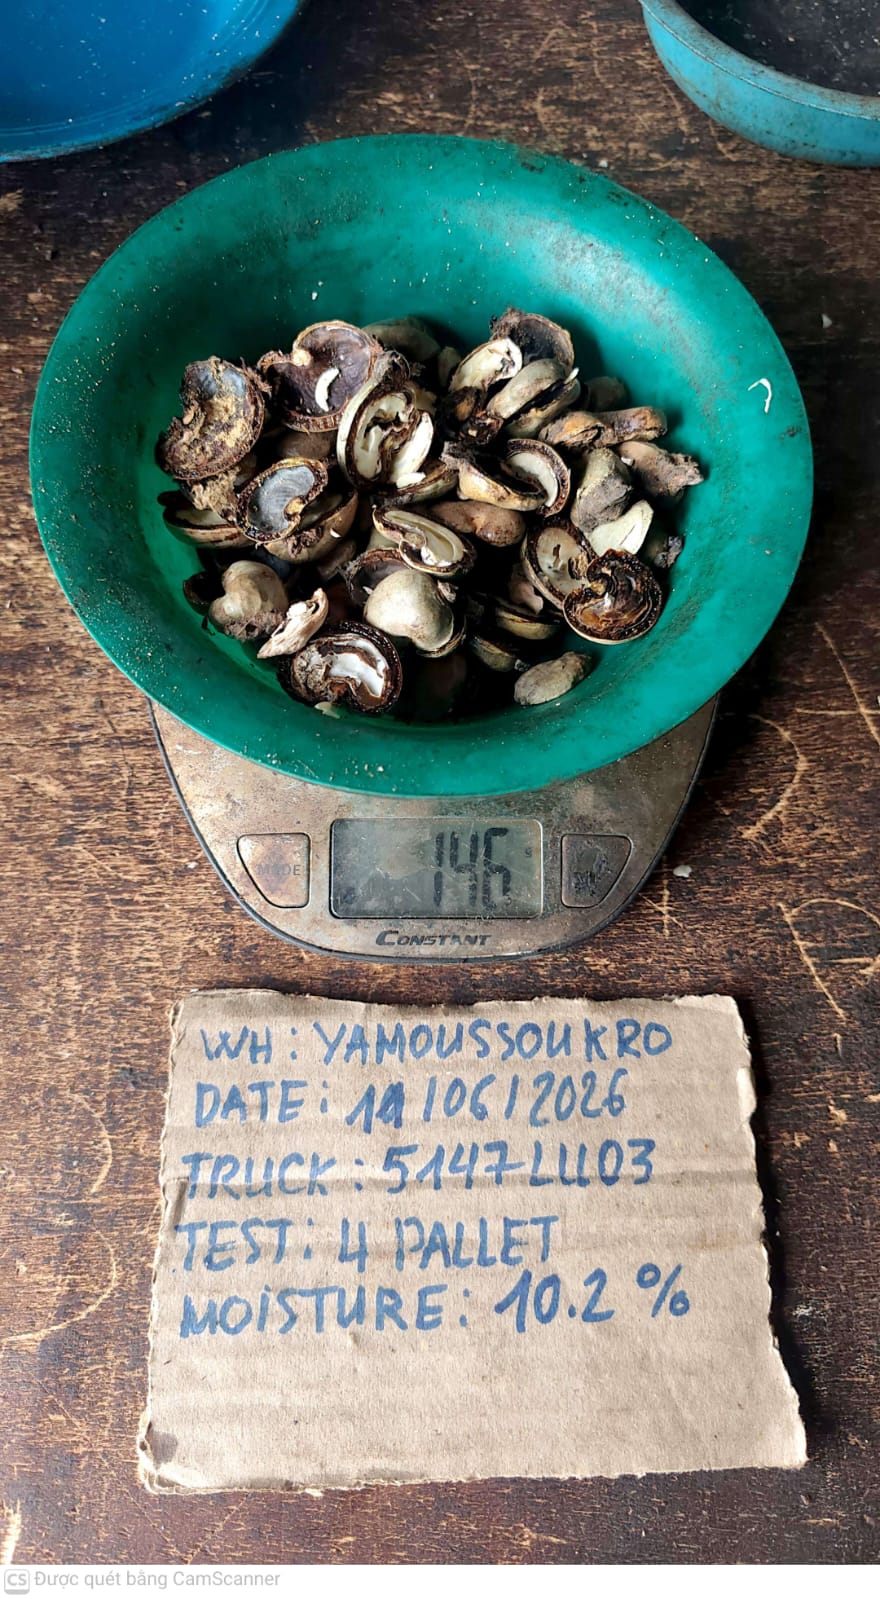 MODE
146 g
CONSTANT
WH : YAMOUSSOUKRO
DATE : 11/06/2026
TRUCK : 5147LU03
TEST : 4 PALLET
MOISTURE : 10.2 %
CS Được quét bằng CamScanner